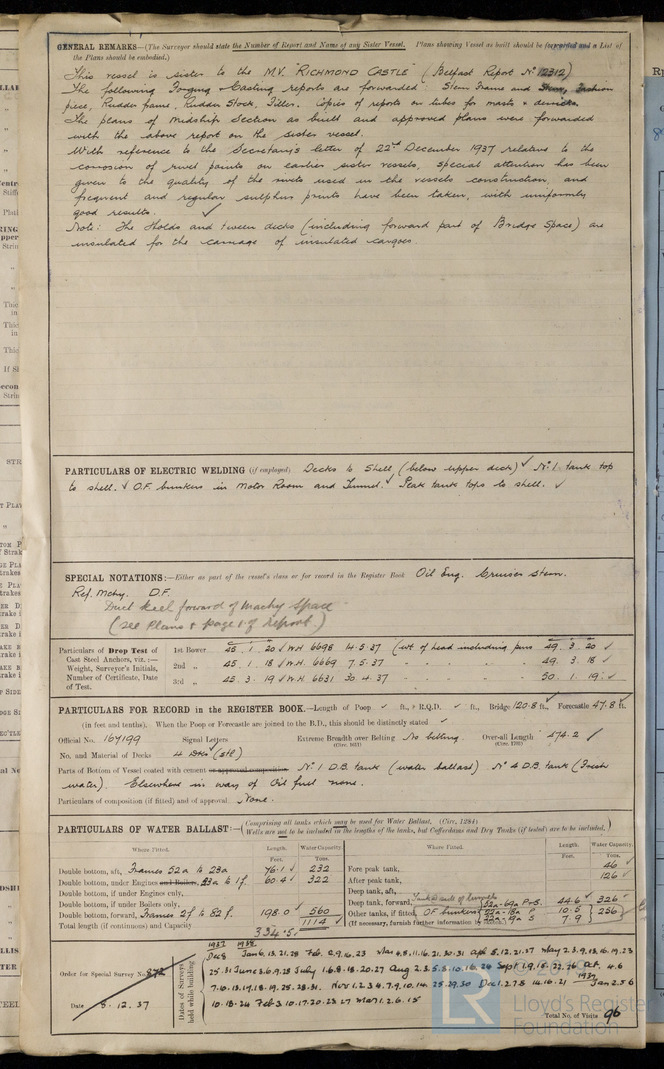 GENERAL REMARKS—(The Surveyor should state the Number of Report and Name of any Sister Vessel. Plans shewing Vessel as built should be forwarded and a List of
the Plans should be embodied.)
This vessel is sister to the M.V. "RICHMOND CASTLE" (Belfast Report No 12312)
The following Forging & Casting reports are forwarded: Stern Frame and Stem, Fashion
piece, Rudder frame, Rudder Stock, Tiller. Copies of reports on tubes for masts & derricks.
The plans of midship Section as built and approved plans were forwarded
with the above report on the sister vessel.
With reference to the Secretary's letter of 22nd December 1937 relative to the
corrosion of rivet points on earlier sister vessels, special attention has been
given to the quality of the rivets used in the vessels construction, and
frequent and regular sulphur prints have been taken, with uniformly
good results. ✓
Note: The Holds and tween decks (including forward part of Bridge Space) are
insulated for the carriage of insulated cargoes.
PARTICULARS OF ELECTRIC WELDING (if employed) Decks to Shell (below upper deck) ✓ No 1 tank top
to shell. ✓ O.F. bunkers in Motor Room and Tunnel. ✓ Peak tank tops to shell. ✓
SPECIAL NOTATIONS:—Either as part of the vessel's class or for record in the Register Book Oil Eng. Cruiser Stern.
Ref. Mchy. D.F.
Duct keel forward of Machy Space
(see Plans & page 1 of report)
Particulars of Drop Test of Cast Steel Anchors, viz.:— Weight, Surveyor's Initials, Number of Certificate, Date of Test.
1st Bower 45. 1. 20 ✓ W.H. 6698 14.5.37 (wt of head including pins 49. 3. 20 ✓
2nd " 45. 1. 18 ✓ W.H. 6669 7.5.37 " " " 49. 3. 18 ✓
3rd " 45. 3. 19 ✓ W.H. 6631 30.4.37 " " " 50. 1. 19 ✓
PARTICULARS FOR RECORD in the REGISTER BOOK.—Length of Poop ✓ ft., R.Q.D. ✓ ft., Bridge 120.8 ft., Forecastle 47.8 ft.
(in feet and tenths). When the Poop or Forecastle are joined to the B.D., this should be distinctly stated ✓
Official No. 164199 Signal Letters Extreme Breadth over Belting No belting. Over-all Length 474.2 ✓
No. and Material of Decks 2 Dks (stl)
Parts of Bottom of Vessel coated with cement or approved composition No 1 D.B. tank (water ballast) No 4 D.B. tank (Fresh
water). Elsewhere in way of Oil fuel none.
Particulars of composition (if fitted) and of approval None.
PARTICULARS OF WATER BALLAST:—(Comprising all tanks which may be used for Water Ballast. (Circ. 1284)
Wells are not to be included in the lengths of the tanks, but Cofferdams and Dry Tanks (if tested) are to be included.)
Where Fitted. Length. Feet. Water Capacity. Tons. Where Fitted. Length. Feet. Water Capacity. Tons.
Double bottom, aft, Frames 52a to 23a 76.1 ✓ 232
Double bottom, under Engines and Boilers, 23a to 1f. 60.4 ✓ 322
Double bottom, if under Engines only,
Double bottom, if under Boilers only,
Double bottom, forward, Frames 2f to 82f. 198.0 ✓ 560
Total length (if continuous) and Capacity 334.5 1114 ✓
Fore peak tank, 46 ✓
After peak tank, 126 ✓
Deep tank, aft,
Deep tank, forward, 52a-69a P&S. 44.6 ✓ 326
Other tanks, if fitted, OF bunkers 10.5 7.9 256
(If necessary, furnish further information by sketch.)
Order for Special Survey No. 872
Date 8.12.37
Dates of Surveys held while building
1937 1938
Dec 8 Jan 6.13.21.28 Feb. 2.9.16.23 Mar 4.5.11.16.21.30.31 Apl 5.12.21.27 May 2.3.9.13.16.19.23
25.31 June 3.6.9.28 July 1.6.8.13.20.27 Aug 2.3.5.8.10.16.24 Sept 1.9.15.22.26 Oct. 4.6
7.10.13.17.18.19.25.28.31. Nov 1.2.3.4.7.9.10.14.25.29.30 Dec 1.2.7.8.14.16.21 1939 Jan 2.5.6
10.18.24 Feb 3.10.17.20.23.27 Mar 1.2.6.15
Total No. of Visits 96
Lloyd's Register
Foundation